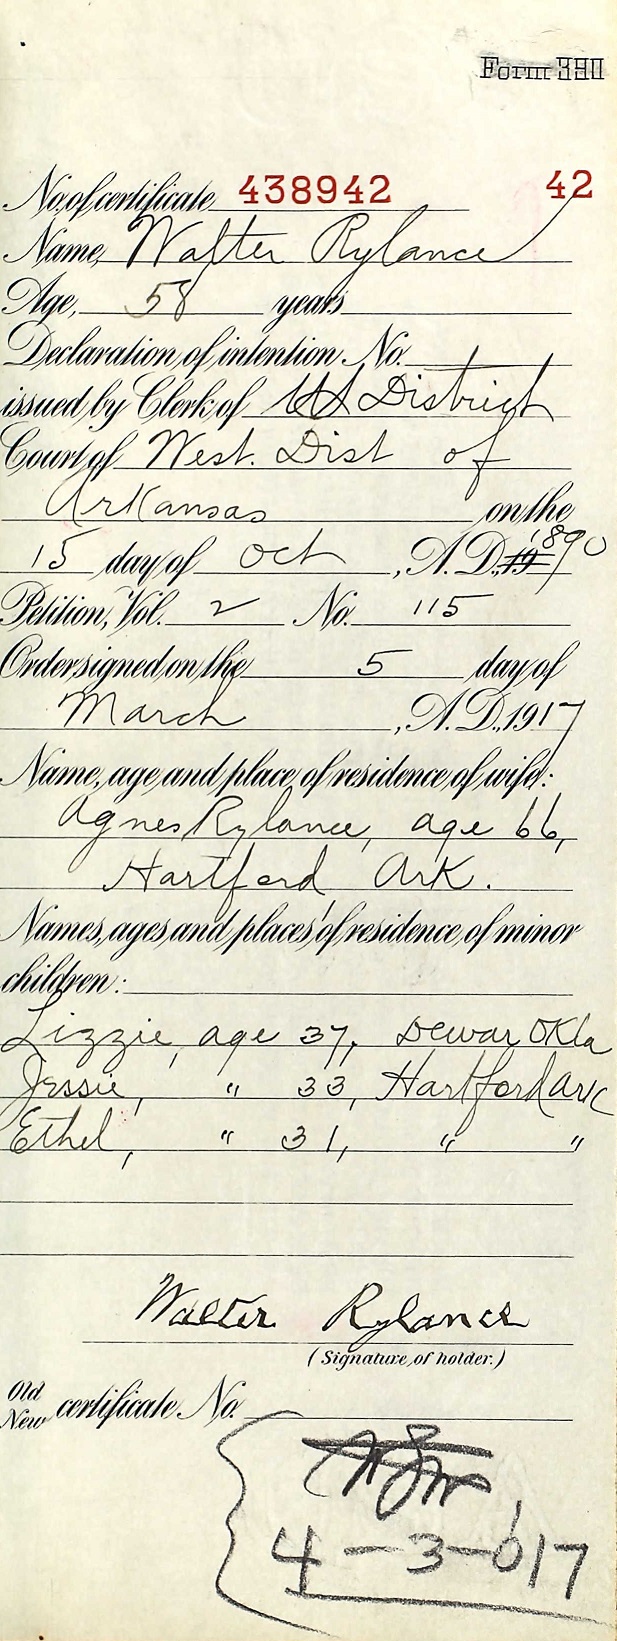 Form 390
No. of certificate 438942 42
Name, Walter Rylance
Age, 58 years
Declaration of intention No.
issued by Clerk of US District
Court of West. Dist of
Arkansas on the
15 day of Oct, A.D. 19 1890
Petition, Vol. 2 No. 115
Order signed on the 5 day of
March, A.D. 1917
Name, age, and place of residence of wife:
Agnes Rylance, age 66,
Hartford Ark.
Names, ages, and places of residence of minor
children:
Lizzie, age 37, Dewar Okla
Jessie, " 33, Hartford Ark
Ethel, " 31, " "
Walter Rylance
(Signature of holder.)
Old
New certificate No.
4-3-017